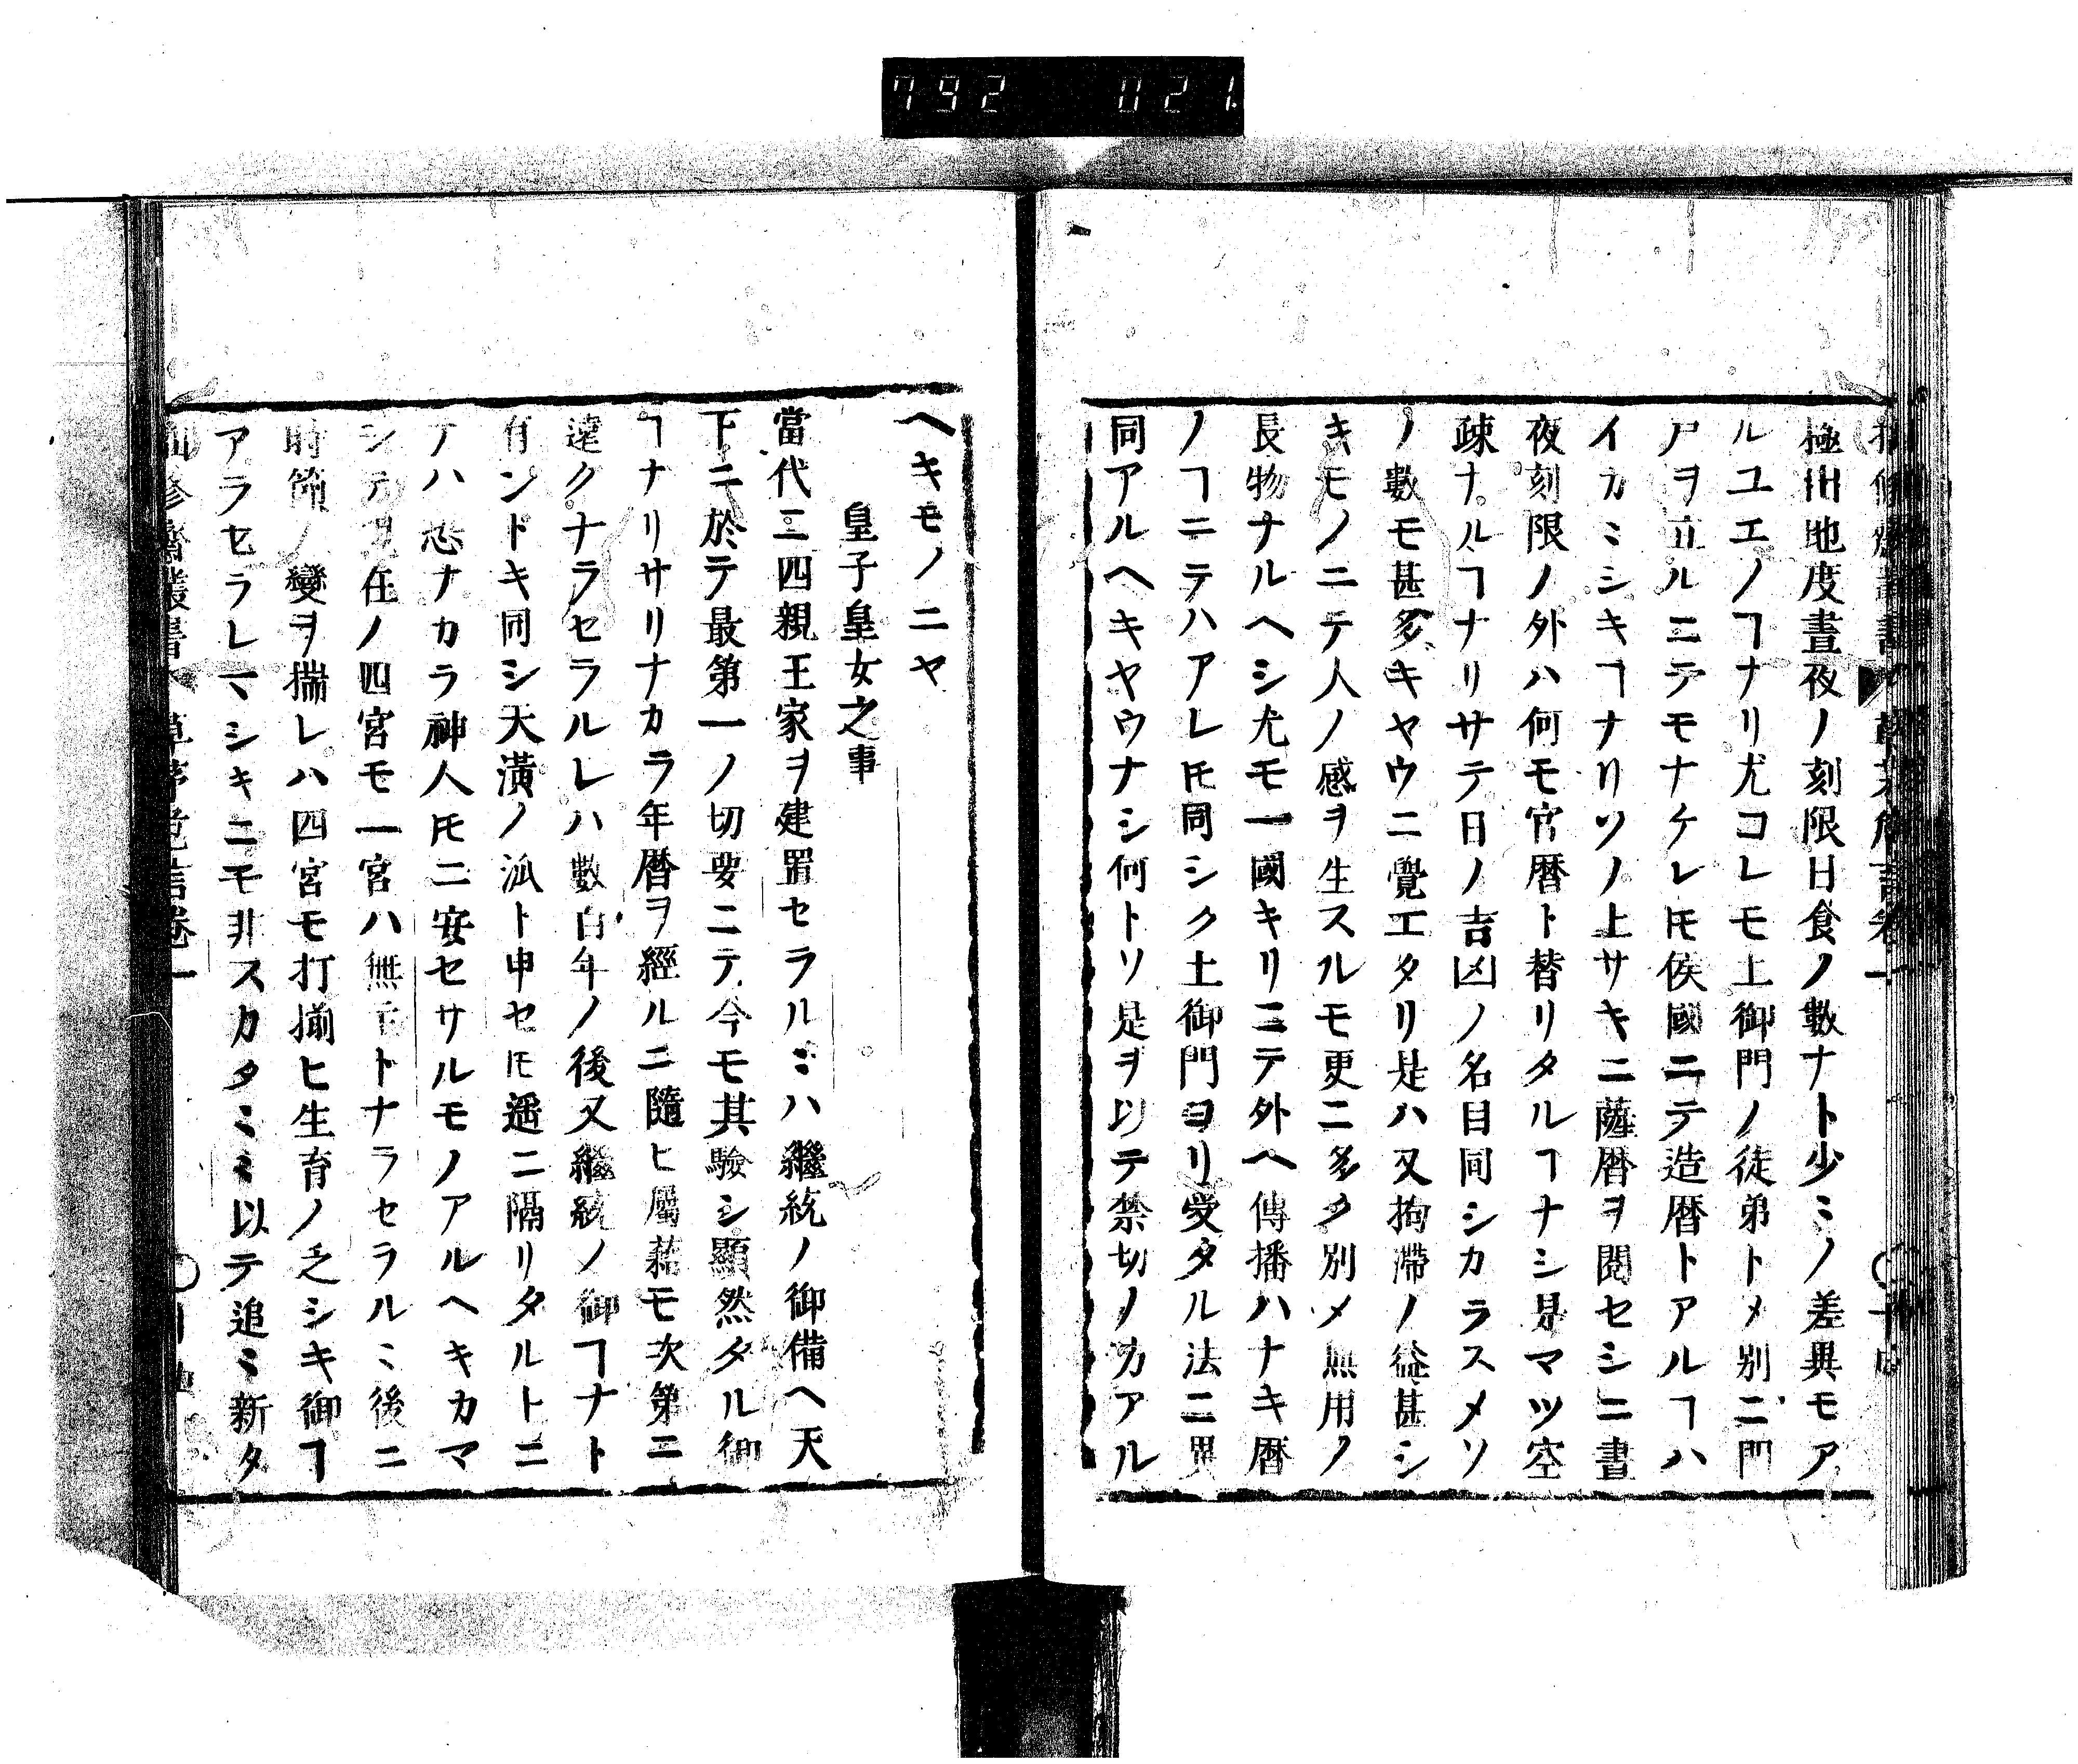 792 021
極出地度晝夜ノ刻限日食ノ數ナト少ミノ差異モア
ルユエノヿナリ尤コレモ土御門ノ徒弟トメ別ニ門
戸ヲ立ルニテモナケレ𪜈侯國ニテ造暦トアルヿハ
イカミシキヿナリソノ上サキニ薩暦ヲ閲セシニ書
夜刻限ノ外ハ何モ官暦ト替リタルヿナシ是マツ空
疎ナルヿナリサテ日ノ吉凶ノ名目同シカラスメソ
ノ數モ甚多キヤウニ覺エタリ是ハ又拘滯ノ益甚シ
キモノニテ人ノ感ヲ生スルモ更ニ多ク別メ無用ノ
長物ナルヘシ尤モ一國キリニテ外ヘ傳播ハナキ暦
ノヿニテハアレ𪜈同シク土御門ヨリ受タル法ニ異
同アルヘキヤウナシ何トソ是ヲ以テ禁切ノカアル
ヘキモノニヤ
皇子皇女之事
當代ニ四親王家ヲ建置セラルミハ繼統ノ御備ヘ天
下ニ於テ最第一ノ切要ニテ今モ其驗シ顯然タル御
ヿナリサリナカラ年暦ヲ經ルニ隨ヒ屬藉モ次第ニ
遠クナラセラルレハ數百年ノ後又繼統ノ御ヿナト
有ンドキ同シ天潢ノ派ト申セ𪜈遥ニ隔リタルトニ
ナハ恐ナカラ神人𪜈ニ安セサルモノアルヘキカマ
シテ現在ノ四宮モ一宮ハ無主トナラセラルミ後ニ
時節ノ變ヲ揣レハ四宮モ打揃ヒ生育ノ乏シキ御ヿ
アラセラレマシキニモ非スカタミミ以テ追ミ新タ